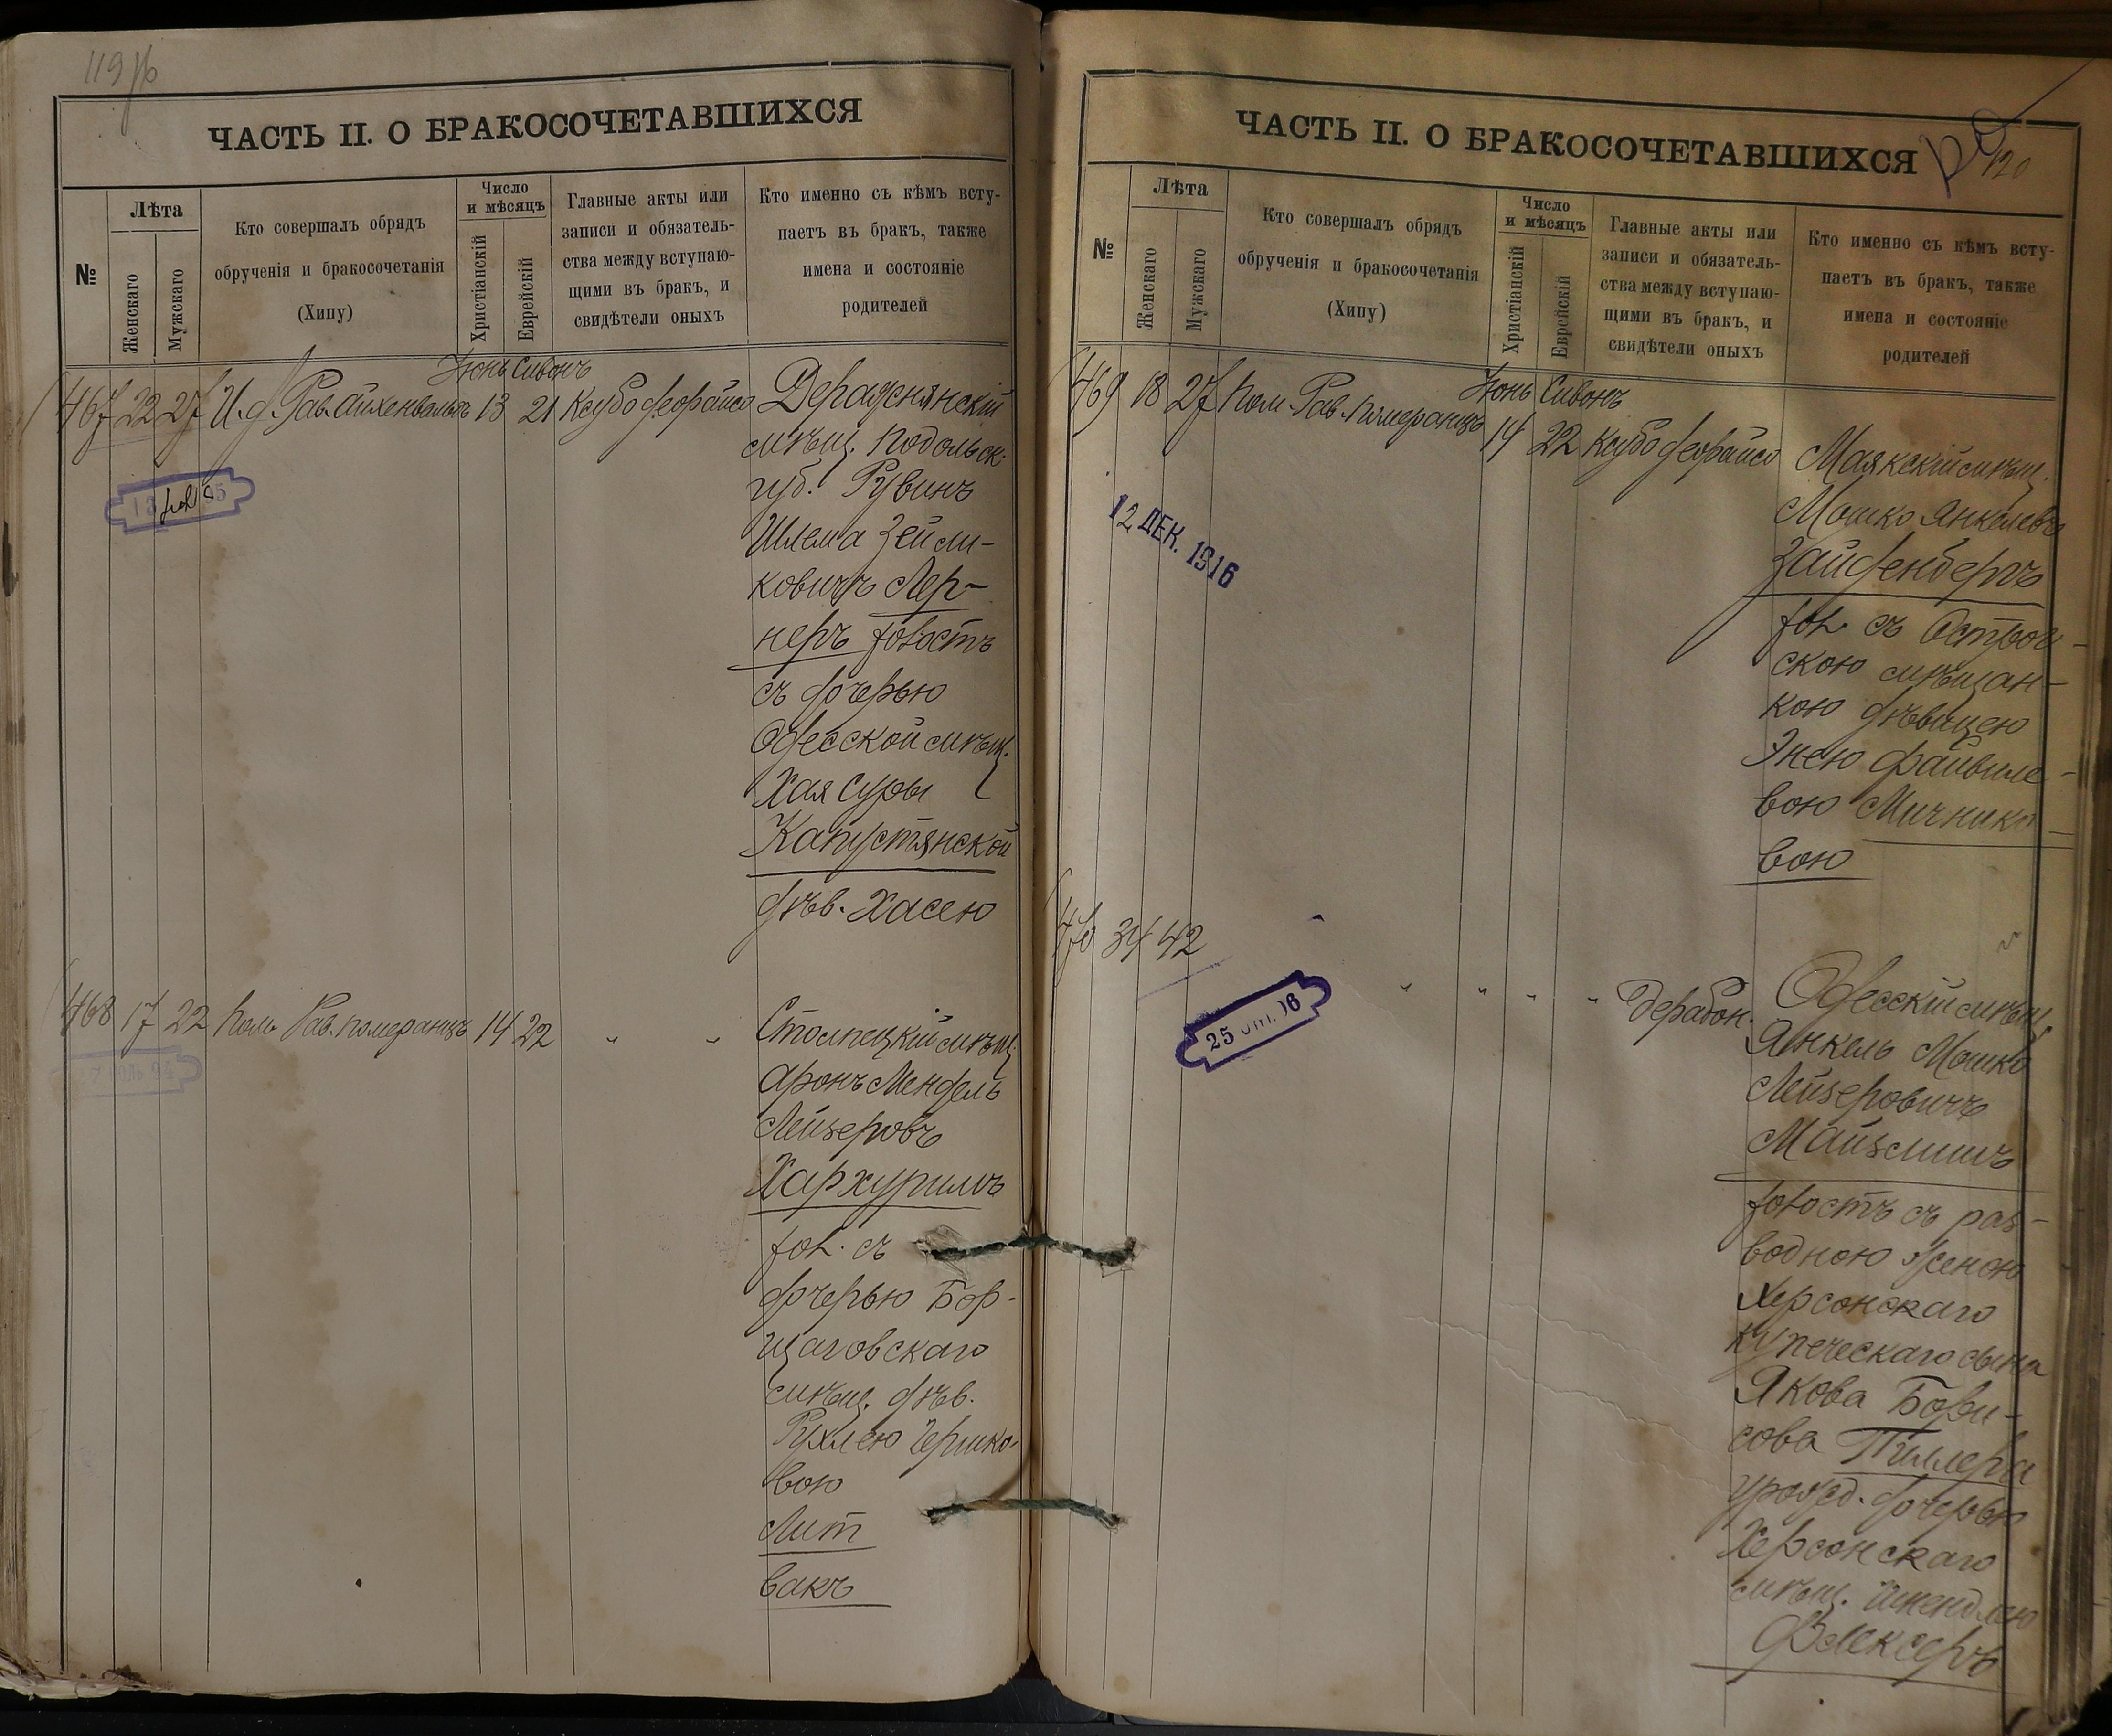 119
ЧАСТЬ II. О БРАКОСОЧЕТАВШИХСЯ
№
Лѣта
Женскаго
Мужскаго
Кто совершалъ обрядъ
обрученія и бракосочетанія
(Хипу)
Число
и мѣсяцъ
Христіанскій
Еврейскій
Главные акты или
записи и обязатель-
ства между вступаю-
щими въ бракъ, и
свидѣтели оныхъ
Кто именно съ кѣмъ всту-
паетъ въ бракъ, также
имена и состояніе
родителей
Іюнь Сивонъ
467 22 27 И. д. Рав. Айхенвальдъ 13 21 Ксубо деорайсо
Деражнянскій
мѣщ. Подольск.
губ. Рувинъ
Шлема Зейли-
ковичъ Лер-
неръ холостъ
съ дочерью
Одесской мѣщ.
Хая Суры
Капустянской
дѣв. Хасею
468 17 22 Пом. Рав. Померанцъ 14 22 " "
Столпецкій мѣщ.
Аронъ Мендель
Лейзеровъ
Хархуримъ
хол. съ
дочерью Бор-
щаговскаго
мѣщ. дѣв.
Рухлею Гершко-
вою
Лит
вакъ
120
ЧАСТЬ II. О БРАКОСОЧЕТАВШИХСЯ
№
Лѣта
Женскаго
Мужскаго
Кто совершалъ обрядъ
обрученія и бракосочетанія
(Хипу)
Число
и мѣсяцъ
Христіанскій
Еврейскій
Главные акты или
записи и обязатель-
ства между вступаю-
щими въ бракъ, и
свидѣтели оныхъ
Кто именно съ кѣмъ всту-
паетъ въ бракъ, также
имена и состояніе
родителей
Іюнь Сивонъ
469 18 27 Пом. Рав. Померанцъ 14 22 Ксубо деорайсо
12 ДЕК. 1916
Маякскій мѣщ.
Мошко Янкелевъ
Зайденбергъ
хол. съ Острог-
скою мѣщан-
кою дѣвицею
Энею Файвиле-
вою Мичнико-
вою
470 34 42 " " " " Дерабон.
Одесскій мѣщ.
Янкель Мошко
Лейзеровичъ
Майзлишъ
холостъ съ раз-
водною женою
Херсонскаго
купеческаго сына
Якова Бори-
сова Тиллера
урожд. дочерью
Херсонскаго
мѣщ. Шендлею
Флексеръ